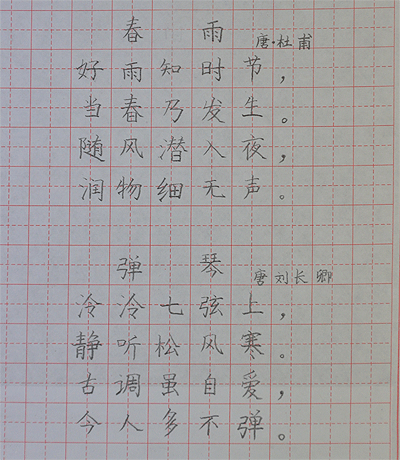 春雨
唐·杜甫
好雨知时节，
当春乃发生。
随风潜入夜，
润物细无声。
弹琴
唐 刘长卿
泠泠七弦上，
静听松风寒。
古调虽自爱，
今人多不弹。